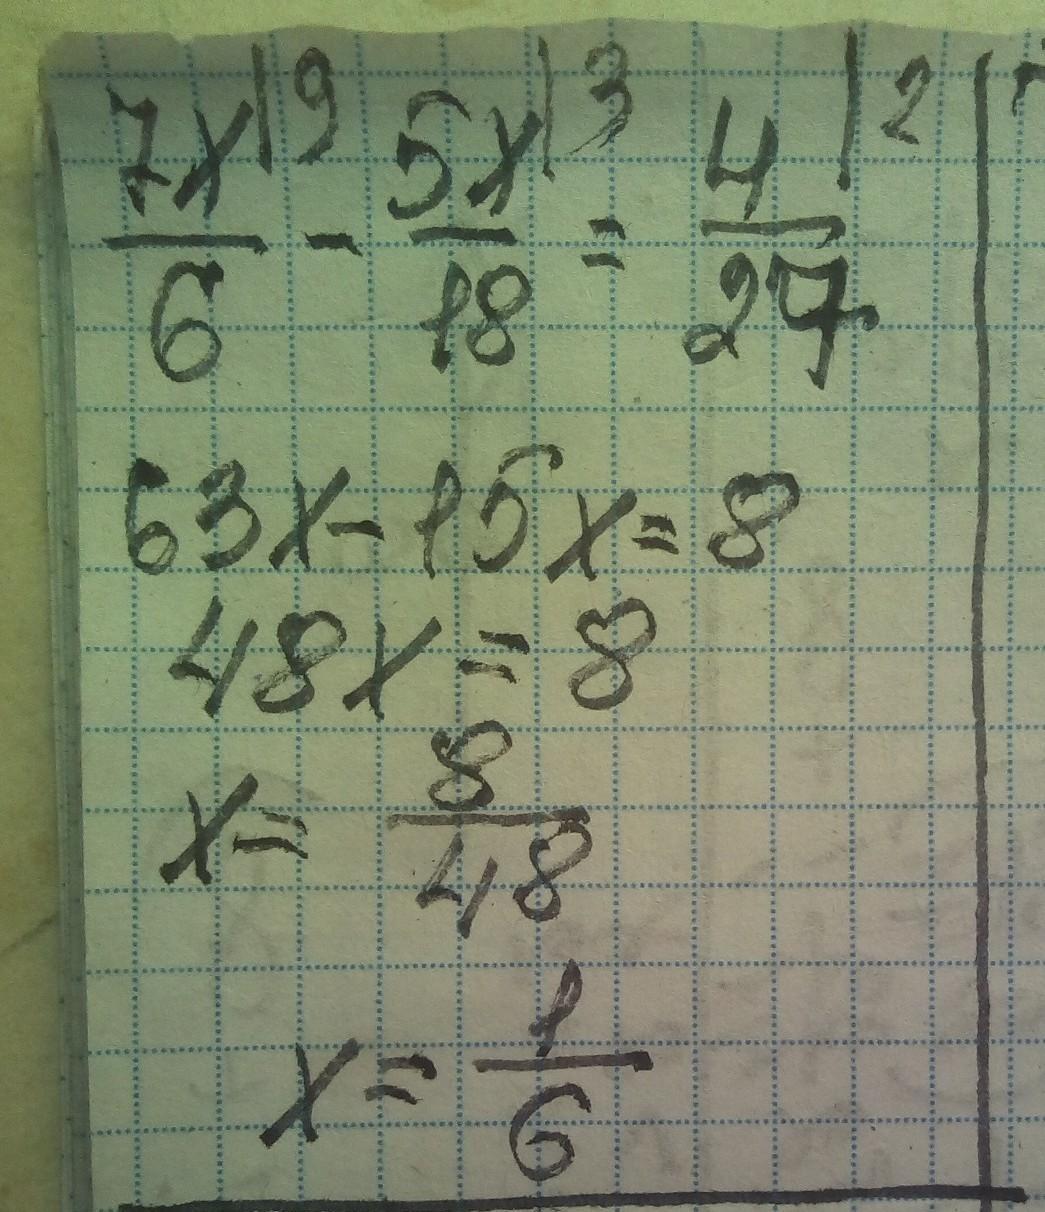 7x/6 |9 - 5x/18 |3 = 4/27 |2
63x - 15x = 8
48x = 8
x = 8/48
x = 1/6